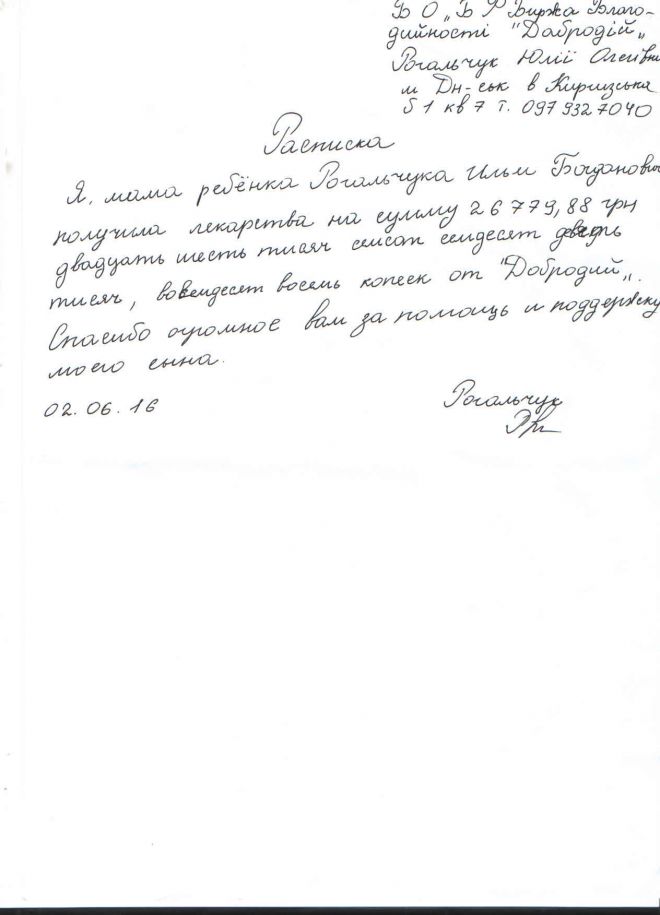 Б О „Б Р Биржа Благо-
дийності "Добродій„
Рогальчук Юлії Олегівни
м Дн-ськ в Киргизська
б 1 кв 7 т. 097 932 70 40
Расписка
Я, мама ребёнка Рогальчука Ильи Богдановича
получила лекарства на сумму 26 779,88 грн
двадцать шесть тисяч семсот семдесят девять
тисяч, восемдесят восемь копеек от "Добродий„.
Спасибо огромное вам за помощь и поддержку
моего сына.
02.06.16
Рогальчук